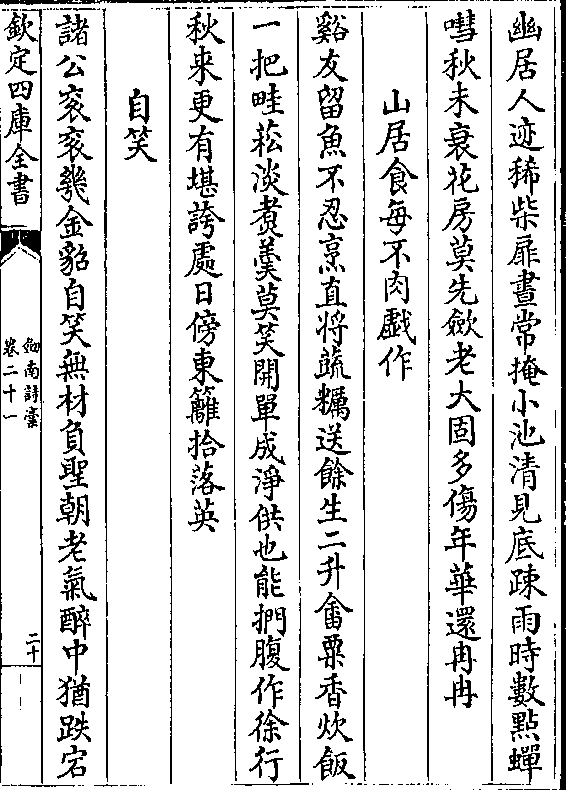 幽居人迹稀柴扉晝常掩小池清見底疎雨時數點蟬
嘒秋未衰花房莫先斂老大固多傷年華還冉冉
山居食每不肉戯作
谿友留魚不忍烹直将蔬糲送餘生二升畬粟香炊飯
一把畦菘淡煑羮莫笑開單成淨供也能捫腹作徐行
秋来更有堪誇處日傍東籬拾落英
自笑
諸公衮衮幾金貂自笑無材負聖朝老氣醉中猶跌宕
欽定四庫全書
劒南詩藁
卷二十一
二十